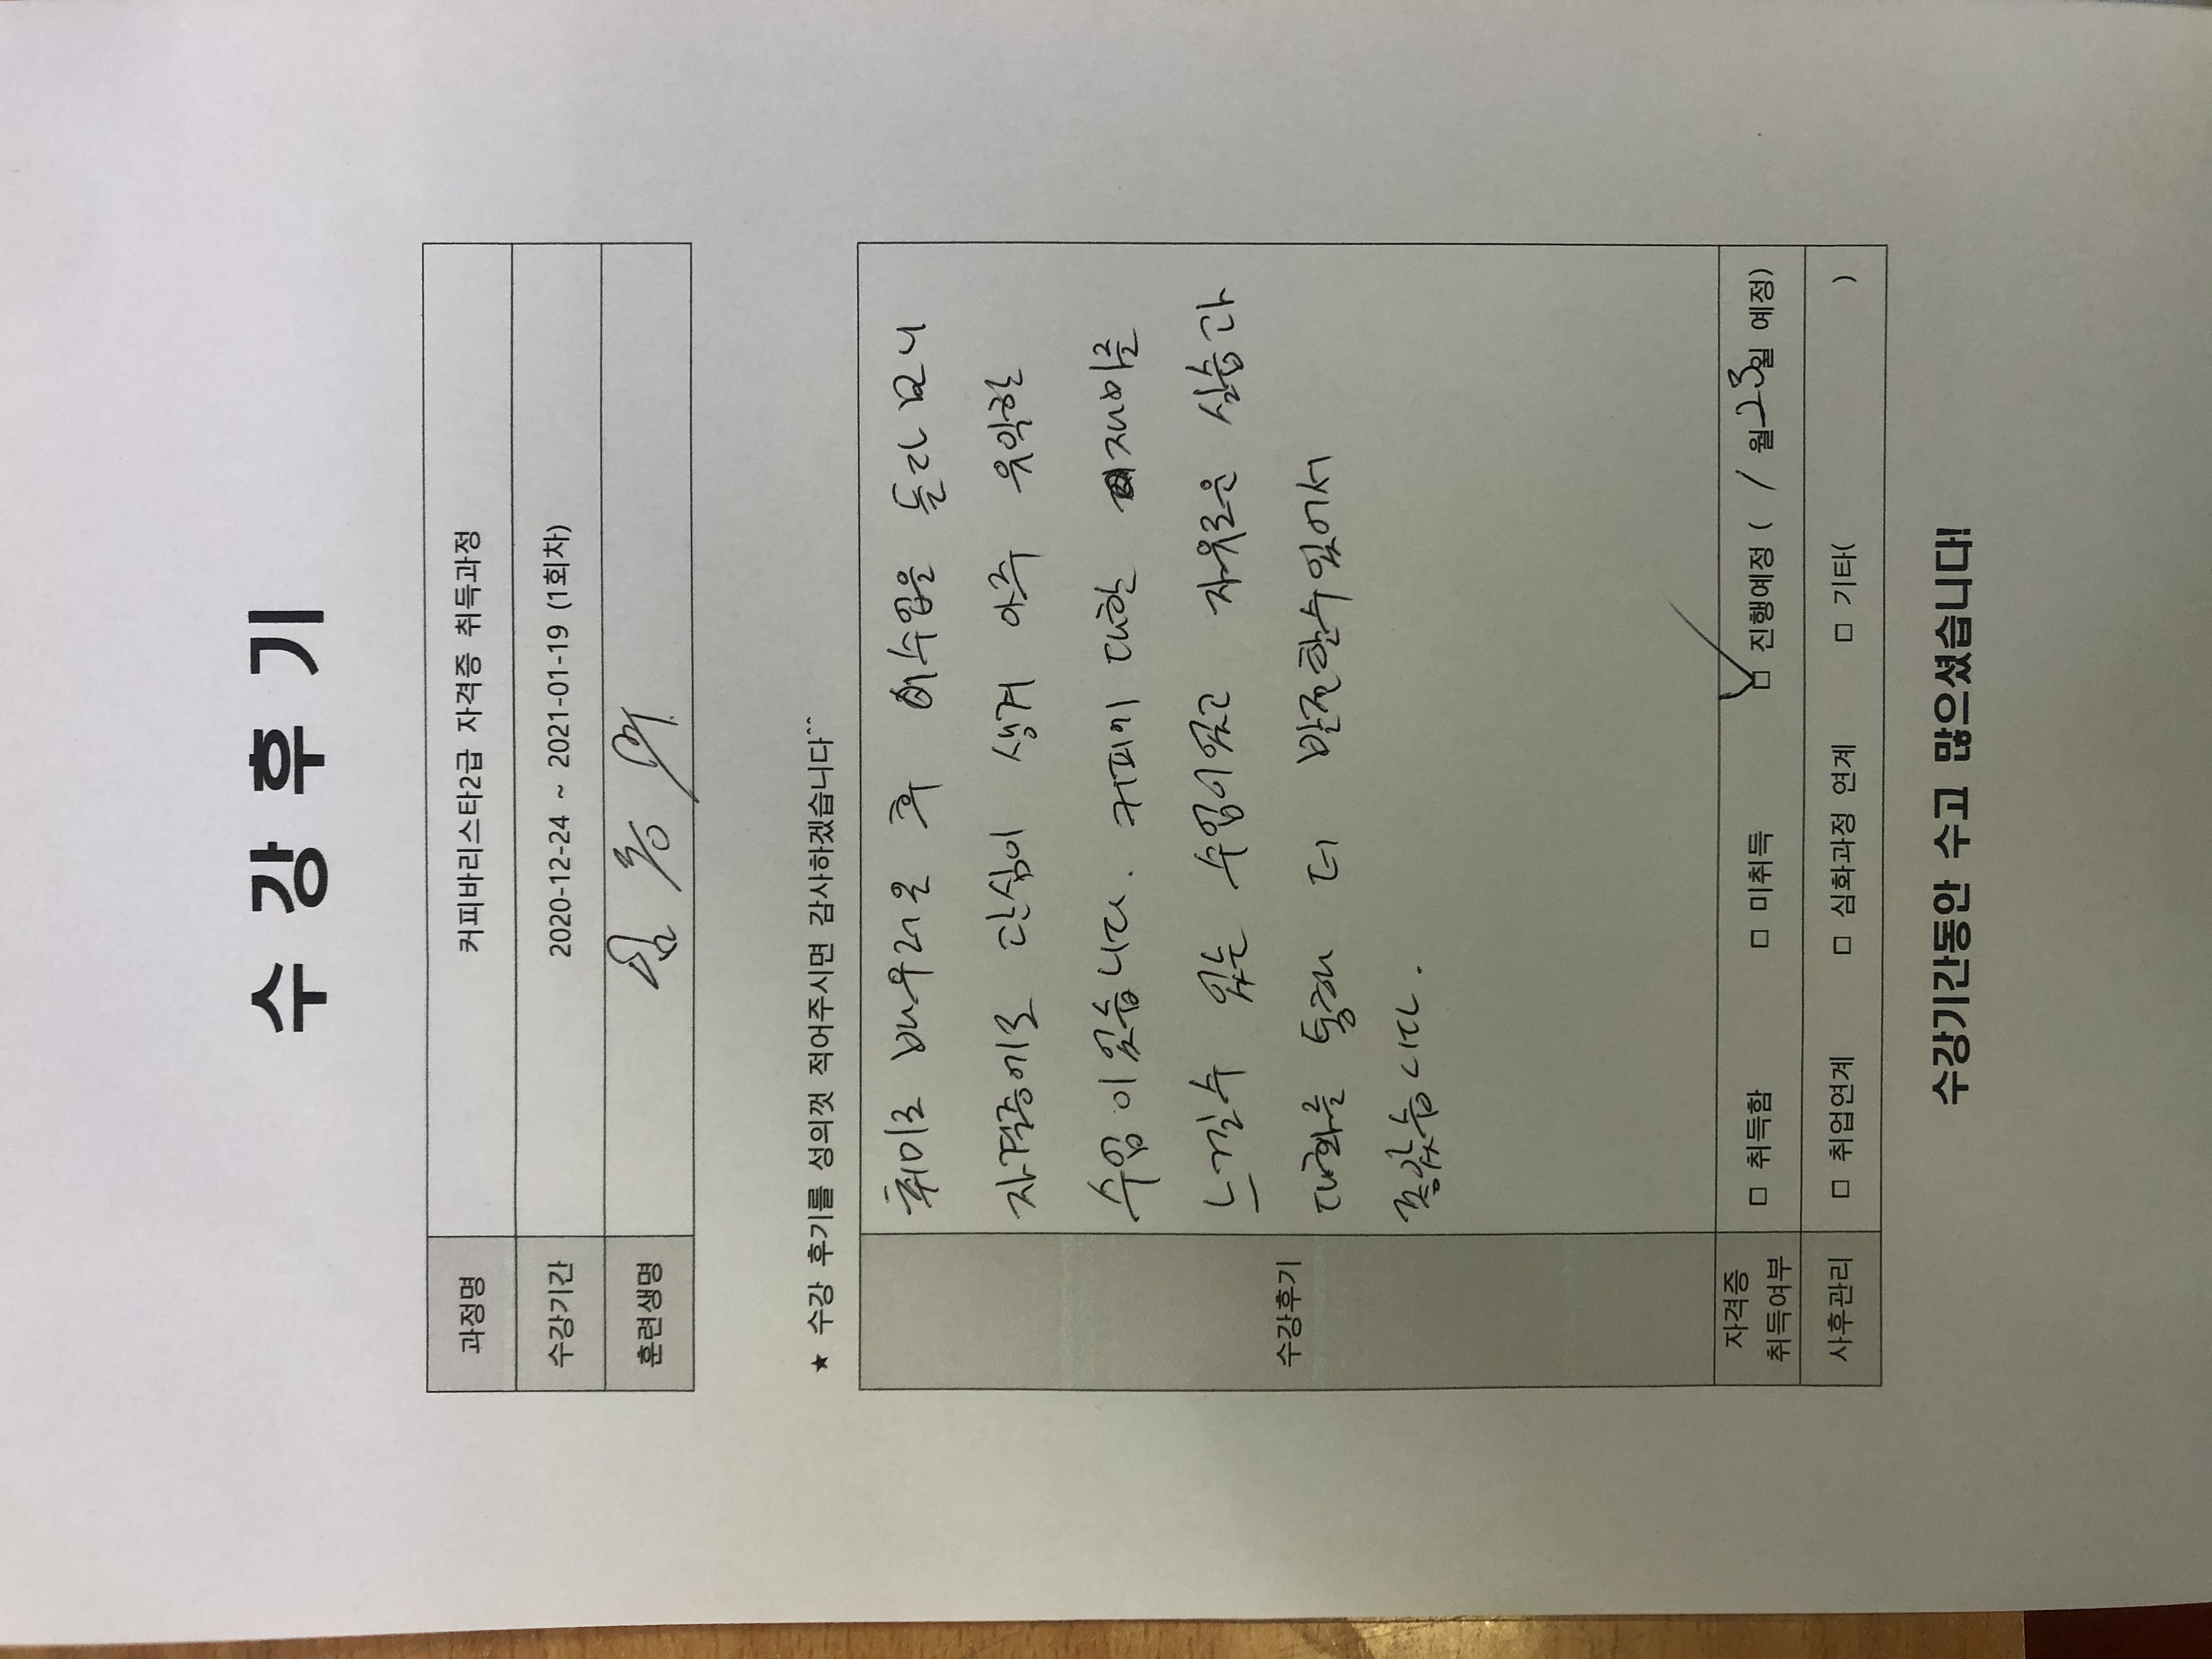 수 강 후 기
과정명 커피바리스타2급 자격증 취득과정
수강기간 2020-12-24 ~ 2021-01-19 (1회차)
훈련생명 심
★ 수강 후기를 성의껏 적어주시면 감사하겠습니다^^
취미로 배우려온 후 이수업을 듣다 보니
자격증에로 관심이 생겨 아주 유익한
수업 이 었습니다. 커피에 대한 재미를
느낄수 있는 수업이었고 자유로운 실습과
대화를 통해 더 발전할수있어서
좋았습니다.
수강후기
자격증
취득여부 □ 취득함 □ 미취득 □ 진행예정 ( / 월 23일 예정)
사후관리 □ 취업연계 □ 심화과정 연계 □ 기타( )
수강기간동안 수고 많으셨습니다!